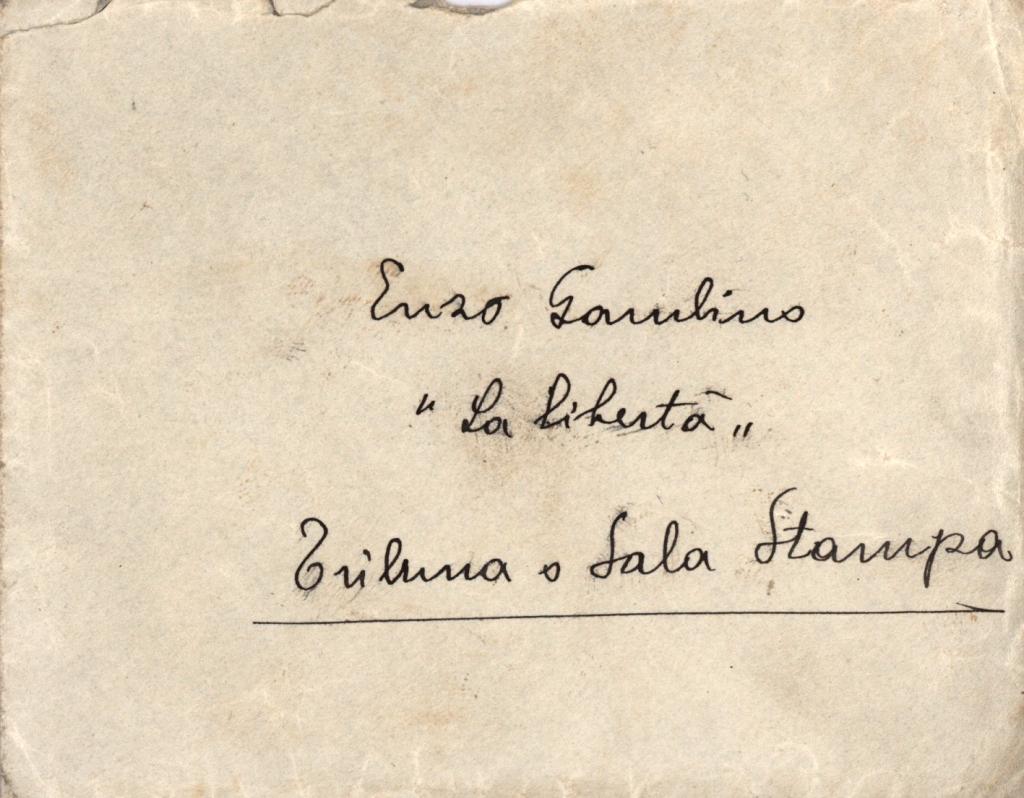 Enzo Gambino
"La libertà„
Tribuna o Sala Stampa